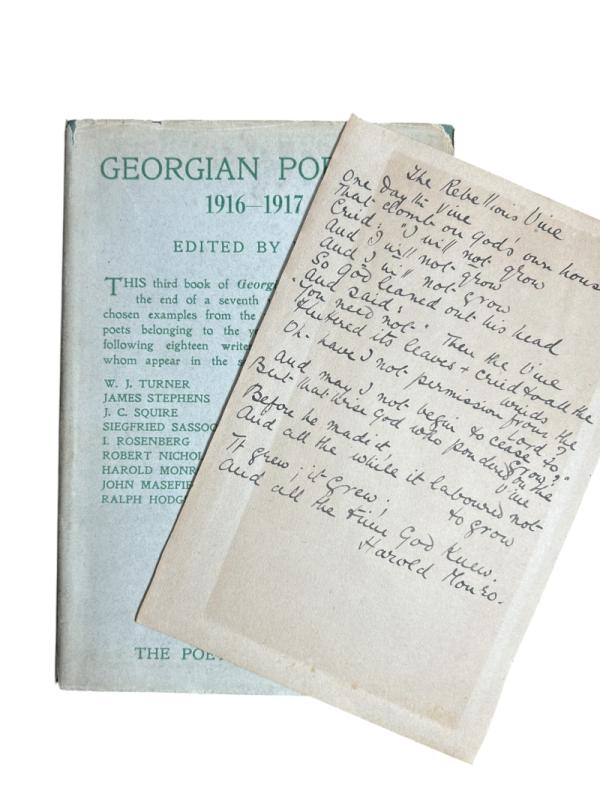 GEORGIAN PO
1916–1917
EDITED BY
THIS third book of Georg
the end of a seventh
chosen examples from the
poets belonging to the
following eighteen write
whom appear in the
W. J. TURNER
JAMES STEPHENS
J. C. SQUIRE
SIEGFRIED SASSOO
I. ROSENBERG
ROBERT NICHOL
HAROLD MONR
JOHN MASEFIE
RALPH HODG
THE POE
The Rebellious Vine
One day the Vine
That clomb on God's own house
Cried: "I will not grow
And I will not grow
And I will not grow
So God leaned out his head
And said:
"You need not." Then the Vine
Fluttered its leaves + cried to all the
winds
Oh have I not permission from the
Lord?
And may I not begin to cease to
grow?"
But that wise God who pondered on the
Vine
Before he made it
And all the while it laboured not
to grow
It grew; it grew;
And all the time God knew.
Harold Monro.